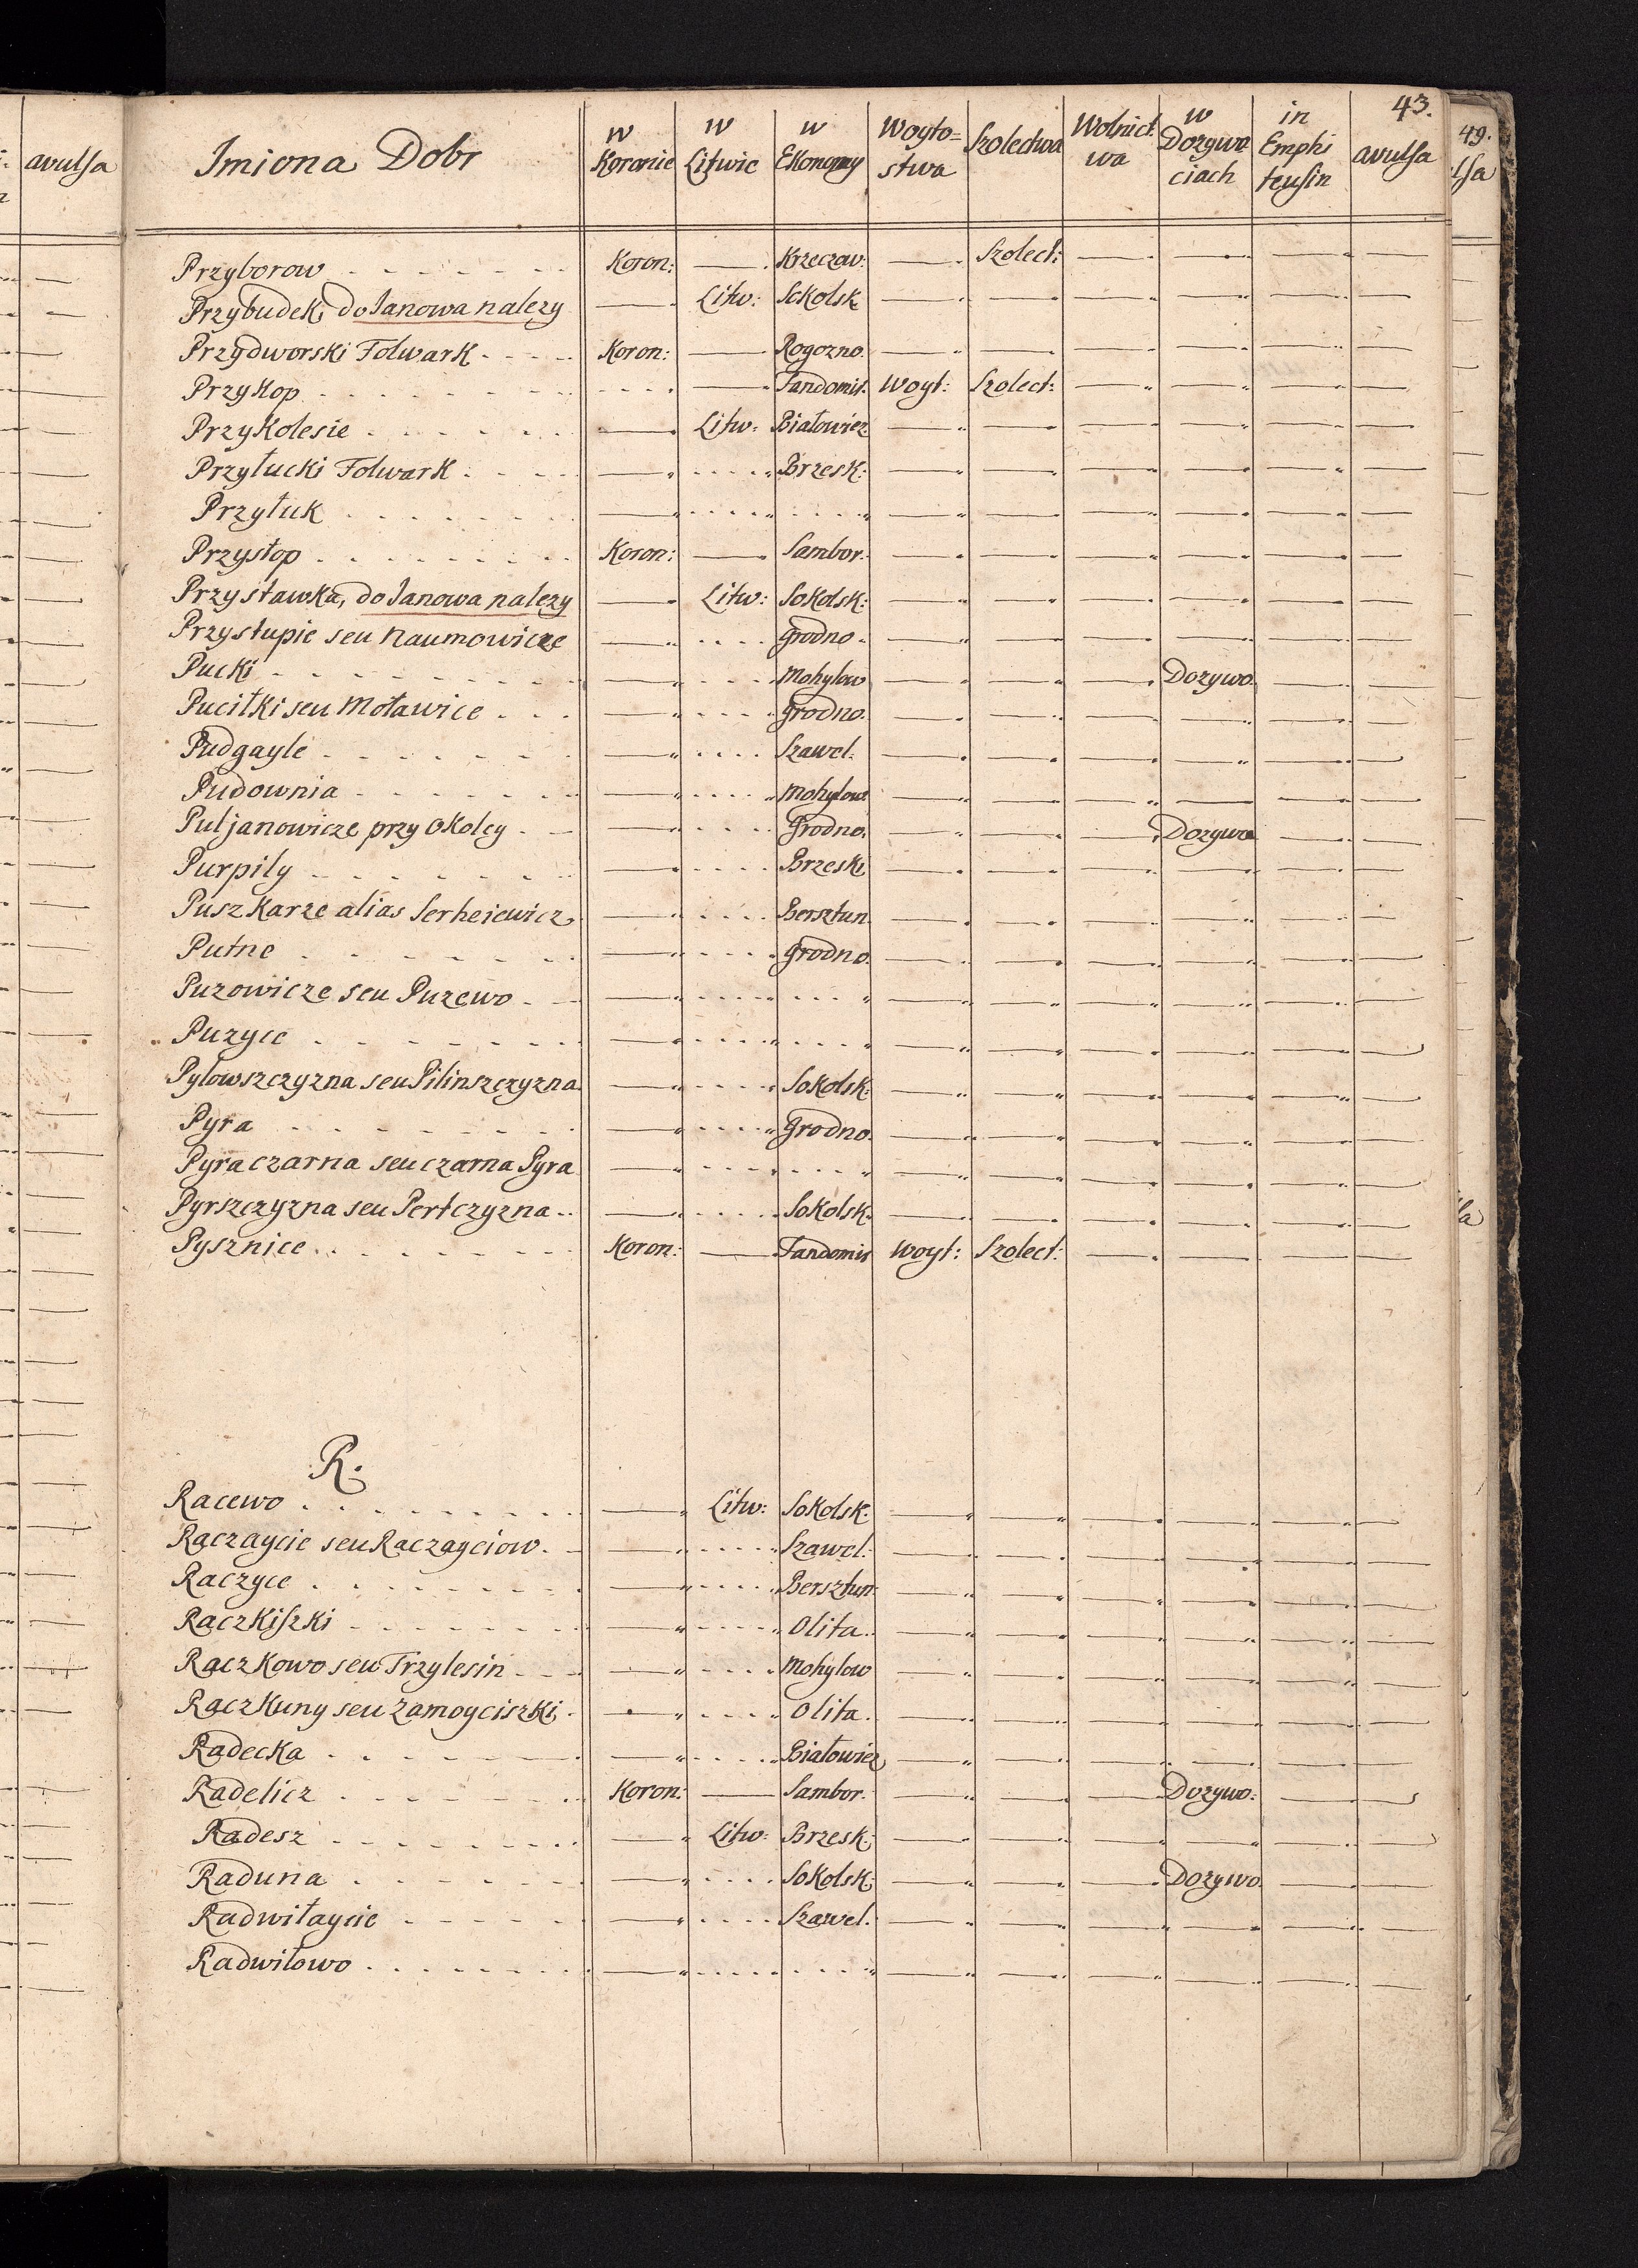 avulsa
43.
49.
lsa
Imiona Dobr | w Koronie | w Litwie | w Ekonomy | Woyto=stwa | Szolectwa | Wolnict.wa | w Dozywociach | in Emphiteusin | avulsa
Przyborow - - - - - - | Koron: | — | Krzeczow: | — | Szolect: | — | — | — | —
Przybudek, do Janowa nalezy | — | Litw: | Sokolsk | — | — | — | — | — | —
Przydworski Folwark - - - - | Koron: | — | Rogozno. | — | — | — | — | — | —
Przykop - - - - - - | - - - - | — | Sandomir. | Woyt: | Szolect: | — | — | — | —
Przykolesie - - - - - - | — | Litw: | Białowiez | — | — | — | — | — | —
Przyłucki Folwark - - - | — | - - - - | Brzesk: | — | — | — | — | — | —
Przyłuk - - - - - - | — | - - - - | - - - - | — | — | — | — | — | —
Przysłop - - - - - - | Koron: | — | Sambor. | — | — | — | — | — | —
Przystawka, do Janowa nalezy | — | Litw: | Sokolsk: | — | — | — | — | — | —
Przystupie seu Naumowicze | — | - - - - | Grodno. | — | — | — | — | — | —
Pucki - - - - - - | — | - - - - | Mohylow | — | — | — | Dozywo. | — | —
Puciłki seu Motawice - - - | — | - - - - | Grodno. | — | — | — | — | — | —
Pudgayle - - - - - - | — | - - - - | Szawel. | — | — | — | — | — | —
Pudownia - - - - - - | — | - - - - | Mohylow | — | — | — | — | — | —
Puljanowicze przy Okolcy - - | — | - - - - | Grodno. | — | — | — | Dozywo | — | —
Purpily - - - - - - | — | - - - - | Brzesk, | — | — | — | — | — | —
Puszkarze alias Serheiewicz, | — | - - - - | Bersztun. | — | — | — | — | — | —
Putne - - - - - - | — | - - - - | Grodno. | — | — | — | — | — | —
Puzowicze seu Puzewo - - | — | - - - - | - - - - | — | — | — | — | — | —
Puzyce - - - - - - | — | - - - - | - - - - | — | — | — | — | — | —
Pylowszczyzna seu Pilinszczyzna | — | - - - - | Sokolsk: | — | — | — | — | — | —
Pyra - - - - - - | — | - - - - | Grodno. | — | — | — | — | — | —
Pyra czarna seu czarna Pyra | — | - - - - | - - - - | — | — | — | — | — | —
Pyrszczyzna seu Pertczyzna - - | — | - - - - | Sokolsk. | — | — | — | — | — | —
Pysznice - - - - - - | Koron: | — | Sandomir | Woyt: | Szolect: | — | — | — | —
R.
Racewo - - - - - - | — | Litw: | Sokolsk: | — | — | — | — | — | —
Raczaycie seu Raczayciow - - | — | - - - - | Szawel: | — | — | — | — | — | —
Raczyce - - - - - - | — | - - - - | Bersztun: | — | — | — | — | — | —
Raczkiszki - - - - - - | — | - - - - | Olita. | — | — | — | — | — | —
Raczkowo seu Trzylesin - - - | — | - - - - | Mohylow | — | — | — | — | — | —
Raczkuny seu Zamoyciszki - | — | - - - - | Olita. | — | — | — | — | — | —
Radecka - - - - - - | — | - - - - | Białowiez | — | — | — | — | — | —
Radelicz - - - - - - | Koron: | — | Sambor. | — | — | — | Dozywo: | — | —
Radesz - - - - - - | — | Litw: | Brzesk: | — | — | — | — | — | —
Raduna - - - - - - | — | - - - - | Sokolsk: | — | — | — | Dozywo. | — | —
Radwiłaycie - - - - - | — | - - - - | Szawel. | — | — | — | — | — | —
Radwiłowo - - - - - - | — | - - - - | - - - - | — | — | — | — | — | —